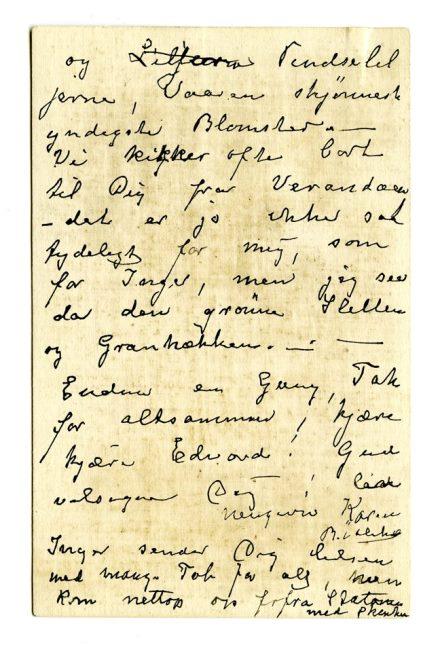 og Pindselil
jerne, Vaaren skjønneste
yndigste Blomster. —
Vi kikker ofte bort
til Dig fra Verandaen
– det er jo ikke saa
tydeligt for mig, som
for Inger, men jeg see
da den grønne Sletten
og Granhækken. — · —
Endnu en Gang, Tak
for altsammen, kjære
kjære Edvard! Gud
velsigne Dig!
Karen
Inger sender Dig hilsen
med mange Tak for alt, hun
kom nettop op fra Stationen
med